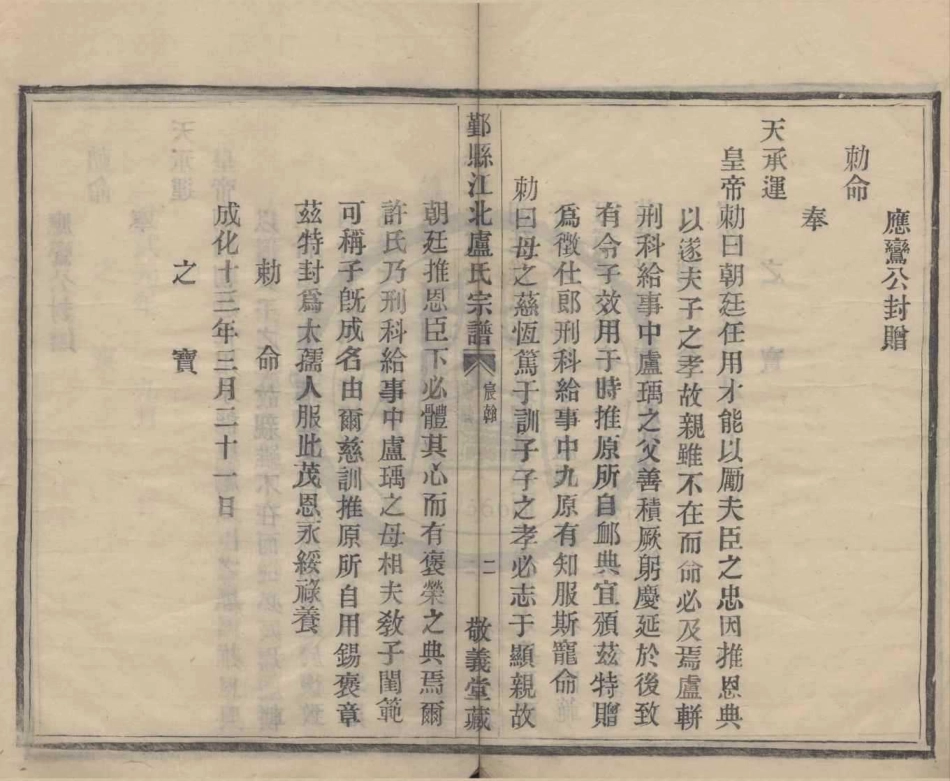 應鸞公封贈
勅命
奉
天承運
皇帝勅曰朝廷任用才能以勵夫臣之忠因推恩典
以遂夫子之孝故親雖不在而命必及焉盧軿
刑科給事中盧瑀之父善積厥躬慶延於後致
有令子效用于時推原所自卹典宜頒茲特贈
爲徵仕郎刑科給事中九原有知服斯寵命
勅曰母之慈恆篤于訓子子之孝必志于顯親故
鄞縣江北盧氏宗譜 宸翰 二 敬義堂藏
朝廷推恩臣下必體其心而有褒榮之典焉爾
許氏乃刑科給事中盧瑀之母相夫敎子閨範
可稱子旣成名由爾慈訓推原所自用錫褒章
茲特封爲太孺人服此茂恩永綏祿養
勅命
成化十三年三月二十一日
之寶